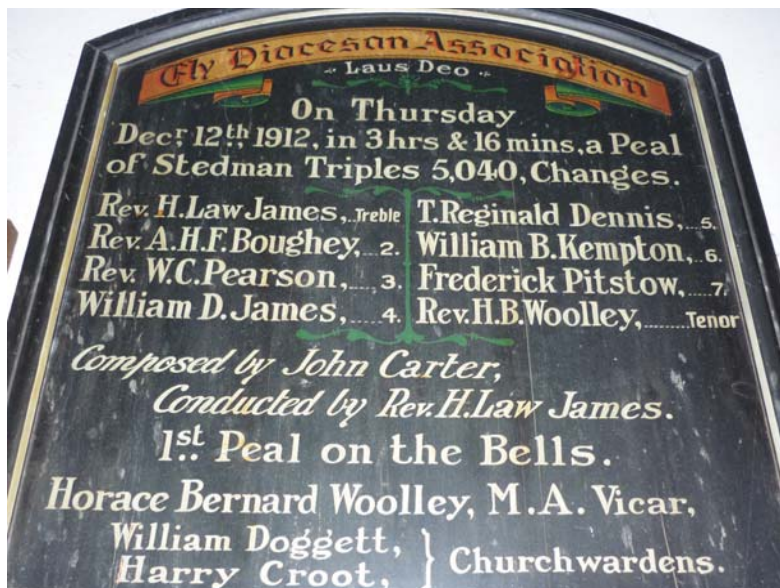 Ely Diocesan Association
Laus Deo
On Thursday
Decr. 12th. 1912, in 3hrs & 16 mins, a Peal
of Stedman Triples 5,040, Changes.
Rev. H. Law James, .. Treble
Rev. A.H.F. Boughey, .... 2.
Rev. W.C. Pearson, ...... 3.
William D. James, ...... 4.
T. Reginald Dennis, .... 5.
William B. Kempton, .. 6.
Frederick Pitstow, ..... 7.
Rev. H.B. Woolley, ........ Tenor
Composed by John Carter,
Conducted by Rev. H. Law James.
1st. Peal on the Bells.
Horace Bernard Woolley, M.A. Vicar,
William Doggett,
Harry Croot,
} Churchwardens.